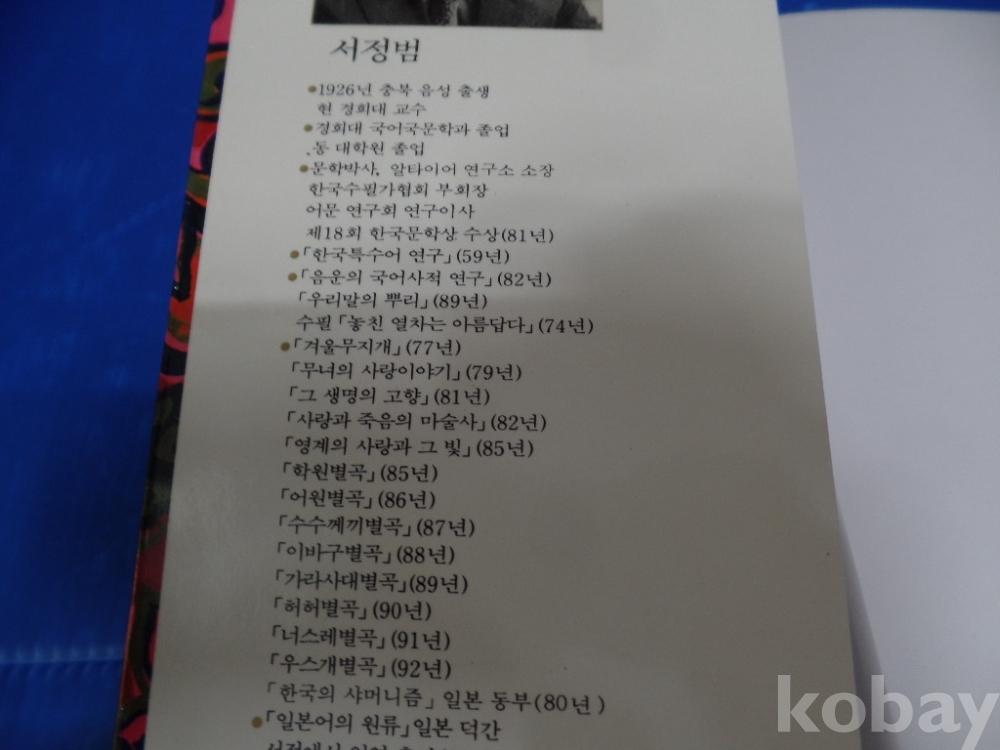 서정범
●1926년 충북 음성 출생
현 경희대 교수
●경희대 국어국문학과 졸업
동 대학원 졸업
●문학박사, 알타이어 연구소 소장
한국수필가협회 부회장
어문 연구회 연구이사
제18회 한국문학상 수상(81년)
●「한국특수어 연구」(59년)
●「음운의 국어사적 연구」(82년)
「우리말의 뿌리」(89년)
수필「놓친 열차는 아름답다」(74년)
●「겨울무지개」(77년)
「무녀의 사랑이야기」(79년)
「그 생명의 고향」(81년)
「사랑과 죽음의 마술사」(82년)
「영계의 사랑과 그 빛」(85년)
「학원별곡」(85년)
「어원별곡」(86년)
「수수께끼별곡」(87년)
「이바구별곡」(88년)
「가라사대별곡」(89년)
「허허별곡」(90년)
「너스레별곡」(91년)
「우스개별곡」(92년)
「한국의 샤머니즘」 일본 동부(80년)
●「일본어의 원류」일본 덕간
kobay